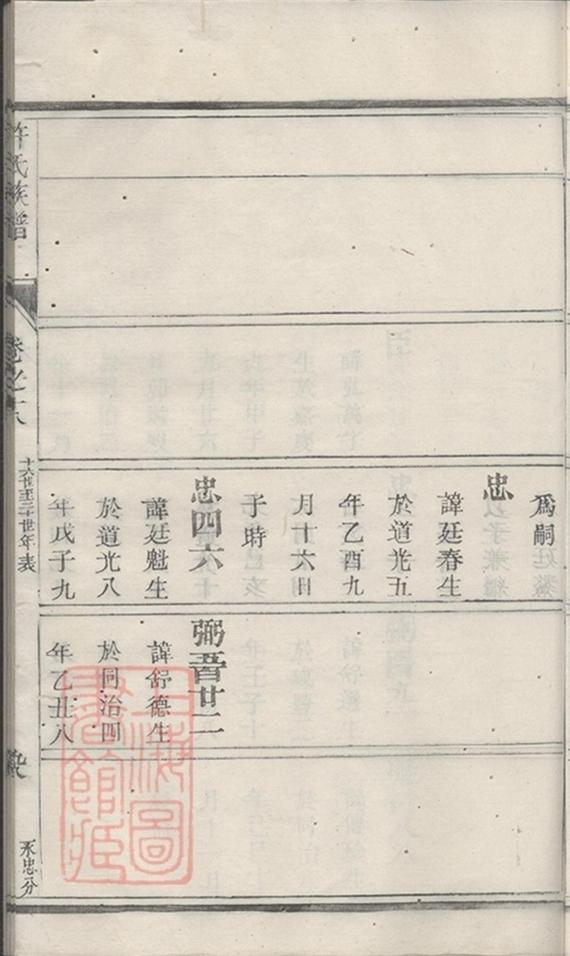 爲嗣
忠
諱廷春生
於道光五
年乙酉九
月十六日
子時
忠四六
諱廷魁生
於道光八
年戊子九
弼音廿二
諱舒德生
於同治四
年乙丑八
許氏族譜
卷之
十六世至二十世年表
永忠分
上海圖書館藏